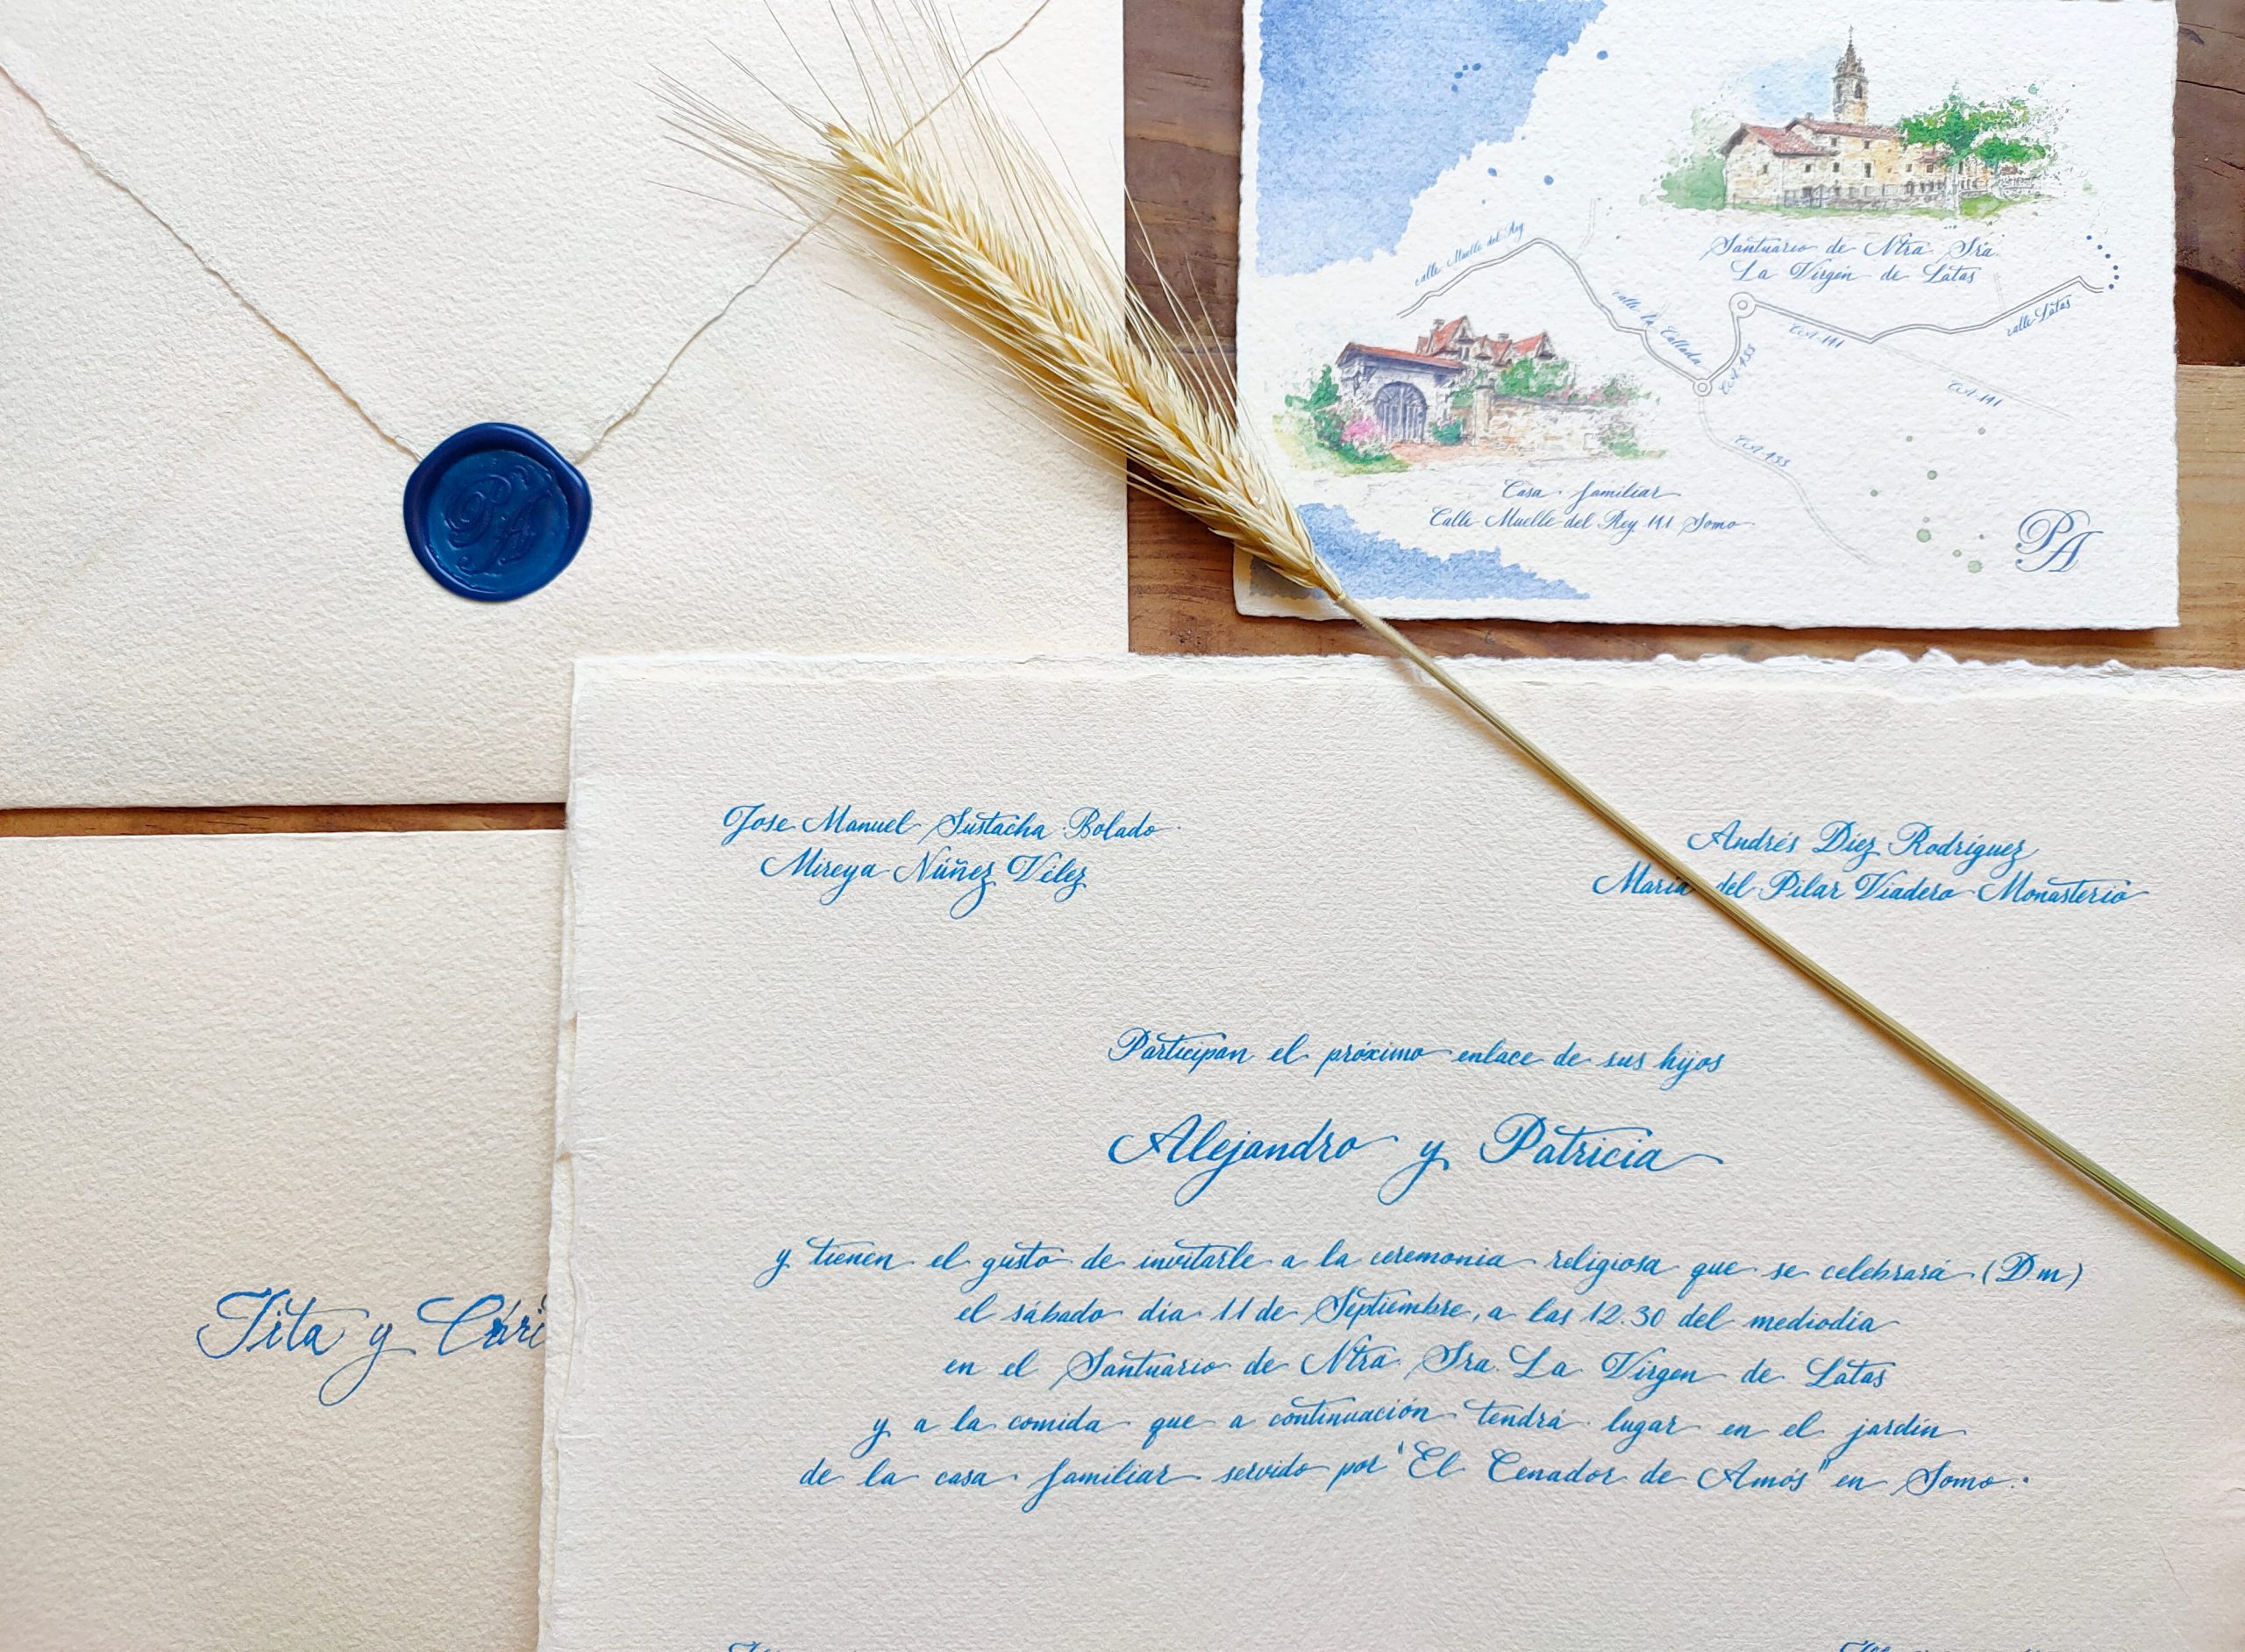 PA
calle Muelle del Rey
calle la Callada
CA-433
CA-141
calle Latas
CA-141
CA-433
Santuario de Ntra. Sra.
La Virgen de Latas
Casa familiar
Calle Muelle del Rey, 141 Somo
PA
Jose Manuel Sustacha Bolado
Mireya Núñez Vélez
Andrés Díez Rodríguez
María del Pilar Viadero Monasterio
Participan el próximo enlace de sus hijos
Alejandro y Patricia
y tienen el gusto de invitarle a la ceremonia religiosa que se celebrará (D.m)
el sábado día 11 de Septiembre, a las 12.30 del mediodía
en el Santuario de Ntra. Sra. La Virgen de Latas
y a la comida que a continuación tendrá lugar en el jardín
de la casa familiar servido por "El Cenador de Amós" en Somo.
Tita y